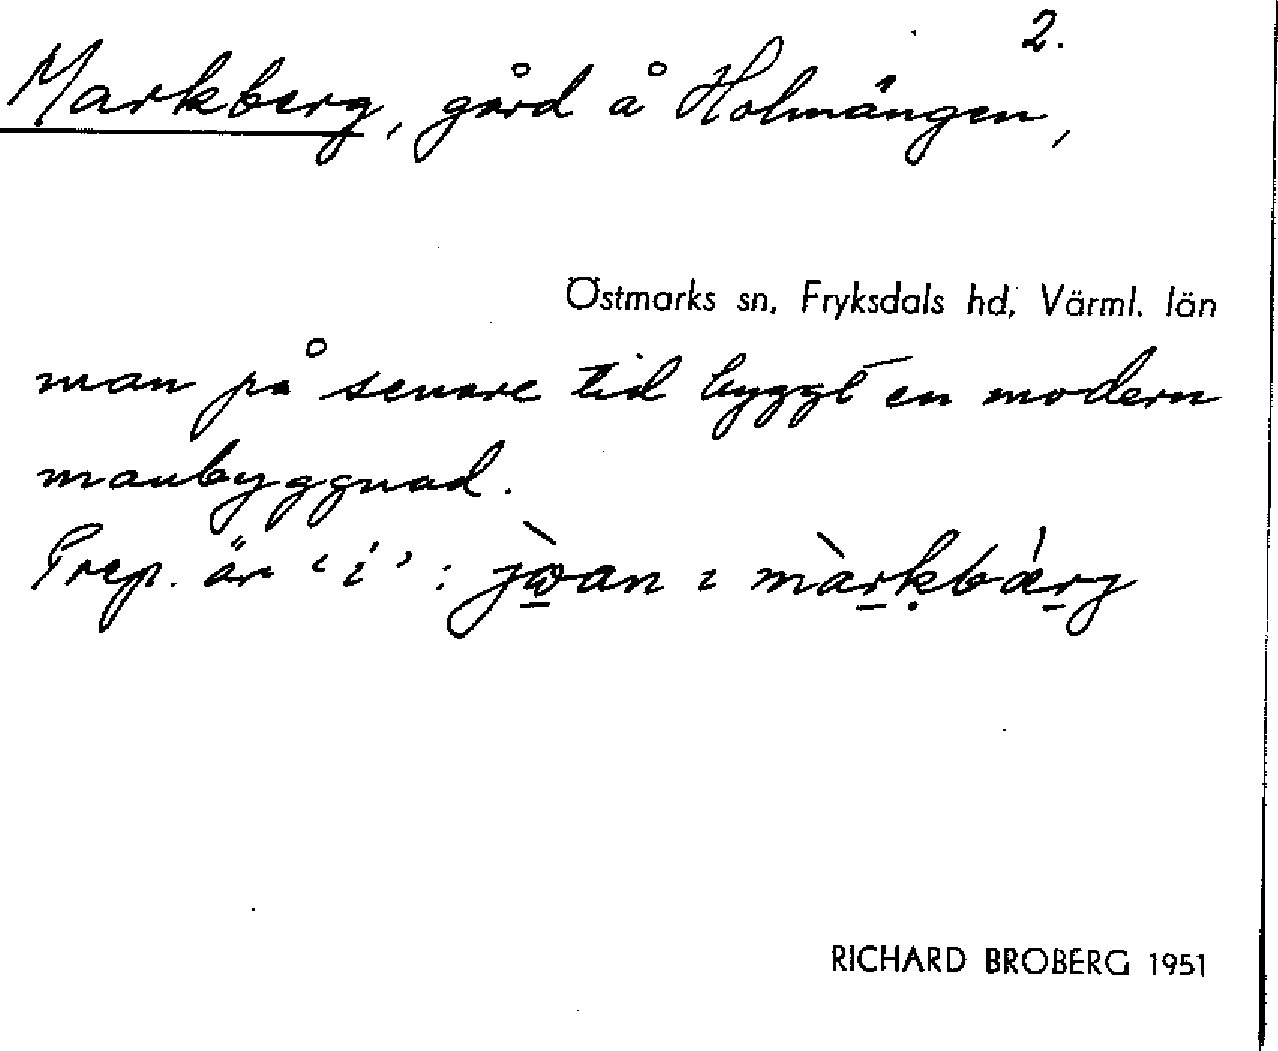 2.
Markberg, gård å Holmängen,
Östmarks sn, Fryksdals hd, Värml. län
man på senare tid byggt en modern
manbyggnad.
Prep. är 'i' :
RICHARD BROBERG 1951